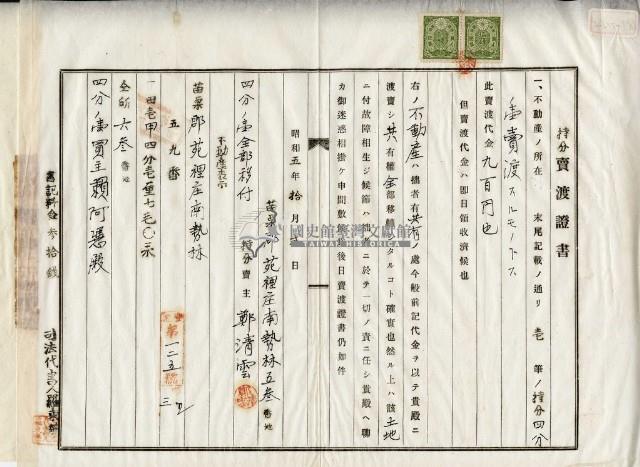 持分賣渡證書
一、不動產ノ所在 末尾記載ノ通リ 壱 筆ノ持分四分
ノ壹賣渡スルモノトス
此賣渡代金九百円也
但賣渡代金ハ即日領收濟候也
右ノ不動產ハ拙者有共有ノ処今般前記代金ヲ以テ貴殿ニ
渡賣シ共有權全部移轉タルコト確實也然ル上ハ該土地
ニ付故障相生シ候節ハ拙ニ於テ一切ノ責ニ任シ貴殿ヘ聊
カ御迷惑相掛ケ申間敷後日賣渡證書仍如件
昭和五年拾月 日
苗栗郡苑裡庄南勢林五叁番地
持分賣主 鄭清雲
四分ノ壹全部移付
不動產表示
苗栗郡苑裡庄南勢林
五九番
一田壱甲四分壱厘七毛〇糸
仝所六叁番地
四分ノ壹買主賴阿馮殿
書記料金叁拾錢
司法代書人羅
第一二五號
國史館臺灣文獻館
TAIWAN HISTORICA